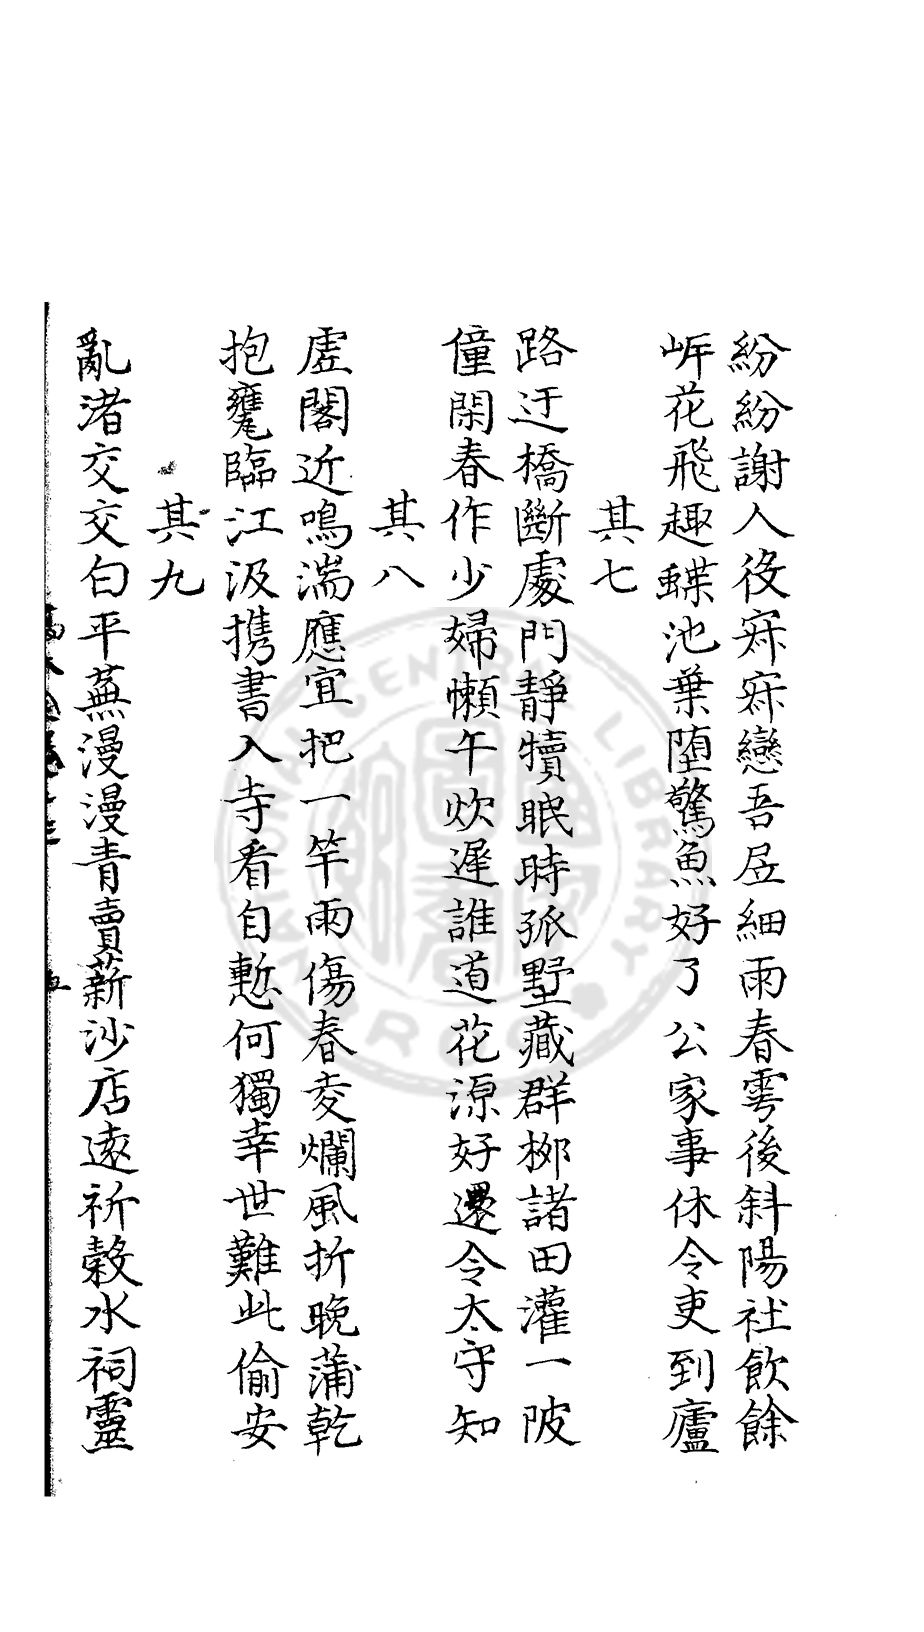 紛紛謝人役寂寂戀吾居細雨春雩後斜陽社飲餘
岸花飛趣蝶池葉墮驚魚好了公家事休令吏到廬
其七
路迂橋斷處門靜犢眠時孤墅藏群柳諸田灌一陂
僮閑春作少婦懶午炊遲誰道花源好還令太守知
其八
虛閣近鳴湍應宜把一竿雨傷春麥爛風折晚蒲乾
抱甕臨江汲携書入寺看自慙何獨幸世難此偷安
其九
亂渚交交白平蕪漫漫青賣薪沙店遠祈穀水祠靈
NATIONAL CENTRAL LIBRARY R.O.C